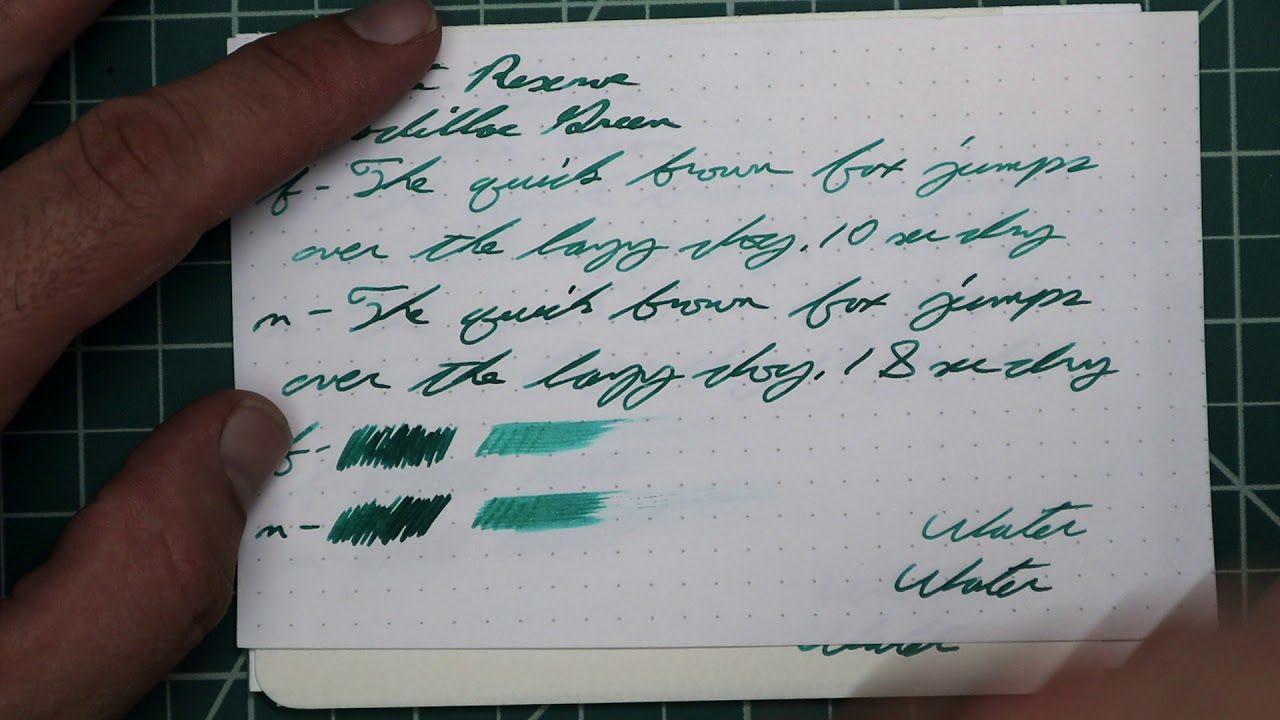 Reserve
Green
f - The quick brown fox jumps
over the lazy dog. 10 sec dry
m - The quick brown fox jumps
over the lazy dog. 18 sec dry
f -
m -
Water
Water
Water